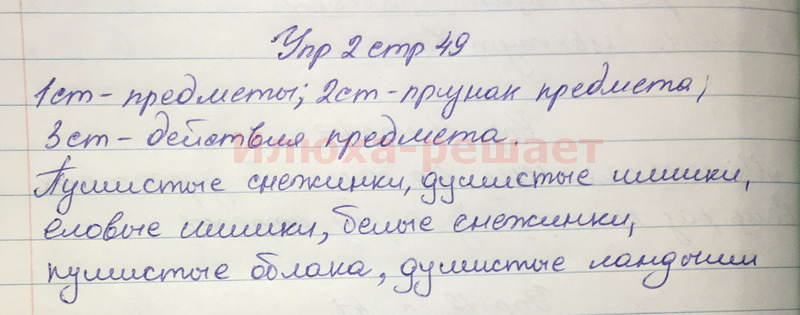 Упр 2 стр 49
1ст - предметы; 2ст - признак предмета;
3ст - действия предмета.
илюха-решает
Пушистые снежинки, душистые шишки,
еловые шишки, белые снежинки,
пушистые облака, душистые ландыши